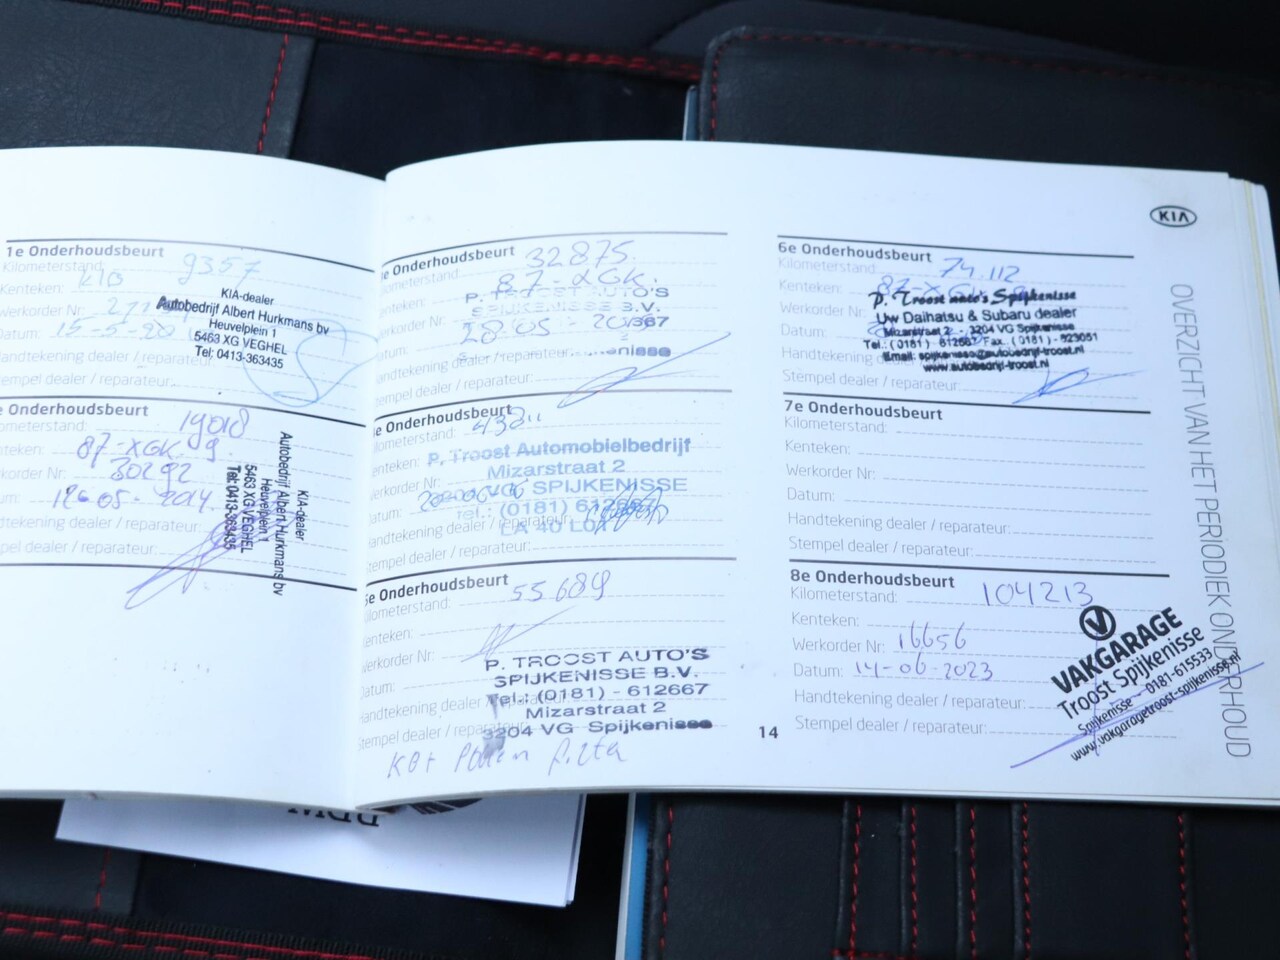 1e Onderhoudsbeurt
Kilometerstand 9357
Kenteken: KIA
Werkorder Nr:
Datum: 15-5-20
Handtekening dealer / reparateur:
Stempel dealer / reparateur:
KIA-dealer
Autobedrijf Albert Hurkmans bv
Heuvelplein 1
5463 XG VEGHEL
Tel: 0413-363435
e Onderhoudsbeurt
ometerstand: 19018
enteken: 87-XGK-9
Werkorder Nr: 30292
um: 26-05-2014
dtekening dealer / reparateur:
pel dealer / reparateur:
KIA-dealer
Autobedrijf Albert Hurkmans bv
Heuvelplein 1
5463 XG VEGHEL
Tel: 0413-363435
e Onderhoudsbeurt
ilometerstand: 32875
enteken: 87-XGK-
erkorder Nr:
tum: 28-05-20
andtekening dealer / reparateur:
tempel dealer / reparateur:
P. TROOST AUTO'S
SPIJKENISSE B.V.
e Onderhoudsbeurt
ilometerstand:
enteken:
Werkorder Nr:
atum:
andtekening dealer / reparateur:
Stempel dealer / reparateur:
P. Troost Automobielbedrijf
Mizarstraat 2
SPIJKENISSE
Tel.: (0181) 612667
5e Onderhoudsbeurt
Kilometerstand: 55689
Kenteken:
Werkorder Nr:
Datum:
Handtekening dealer / reparateur:
Stempel dealer / reparateur:
P. TROOST AUTO'S
SPIJKENISSE B.V.
Tel.: (0181) - 612667
Mizarstraat 2
3204 VG Spijkenisse
14
KIA
6e Onderhoudsbeurt
Kilometerstand: 74.112
Kenteken: 87-XGK-9
Werkorder Nr:
Datum:
Handtekening
Stempel dealer / reparateur:
P. Troost auto's Spijkenisse
Uw Daihatsu & Subaru dealer
Mizarstraat 2 - 3204 VG Spijkenisse
Tel.: (0181) - 612667 Fax. (0181) - 623051
Email: spijkenisse@autobedrijf-troost.nl
www.autobedrijf-troost.nl
7e Onderhoudsbeurt
Kilometerstand:
Kenteken:
Werkorder Nr:
Datum:
Handtekening dealer / reparateur:
Stempel dealer / reparateur:
8e Onderhoudsbeurt
Kilometerstand: 104213
Kenteken:
Werkorder Nr: 16656
Datum: 14-06-2023
Handtekening dealer / reparateur:
Stempel dealer / reparateur:
VAKGARAGE
Troost Spijkenisse
Spijkenisse - 0181-615533
www.vakgaragetroost-spijkenisse.nl
OVERZICHT VAN HET PERIODIEK ONDERHOUD